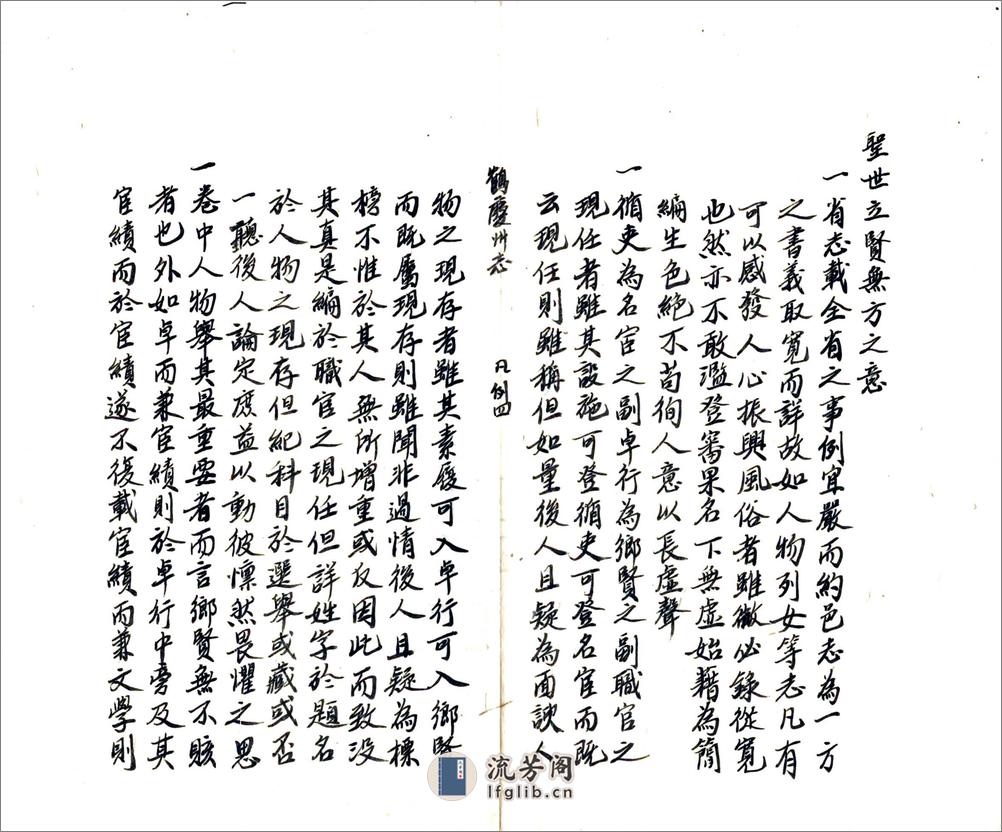 聖世立賢無方之意
一省志載全省之事例宜嚴而約邑志為一方
之書義取寬而詳故如人物列女等志凡有
可以感發人心振興風俗者雖微必錄從寬
也然亦不敢濫登審果名下無虛始藉為簡
編生色絕不苟徇人意以長虛聲
一循吏為名宦之副卓行為鄉賢之副職官之
現任者雖其設施可登循吏可登名宦而既
云現任則雖稱但如量後人且疑為面諛人
鶴慶州志 凡例四
物之現存者雖其素履可入卓行可入鄉賢
而既屬現存則雖聞非過情後人且疑為標
榜不惟於其人無所增重或反因此而致没
其真是編於職官之現任但詳姓字於題名
於人物之現存但紀科目於選舉或藏或否
一聽後人論定庶益以動彼懍然畏懼之思
一卷中人物舉其最重要者而言鄉賢無不賅
者也外如卓而兼宦績則於卓行中旁及其
宦績而於宦績遂不復載宦績而兼文學則
流芳阁
lfglib.cn